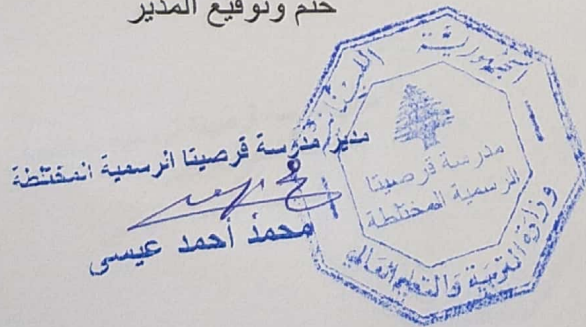 ختم وتوقيع المدير
مدير/مدرسة قرصيتا الرسمية المختلطة
محمد أحمد عيسى
الجمهورية اللبنانية
مدرسة قرصيتا
الرسمية المختلطة
وزارة التربية والتعليم العالي